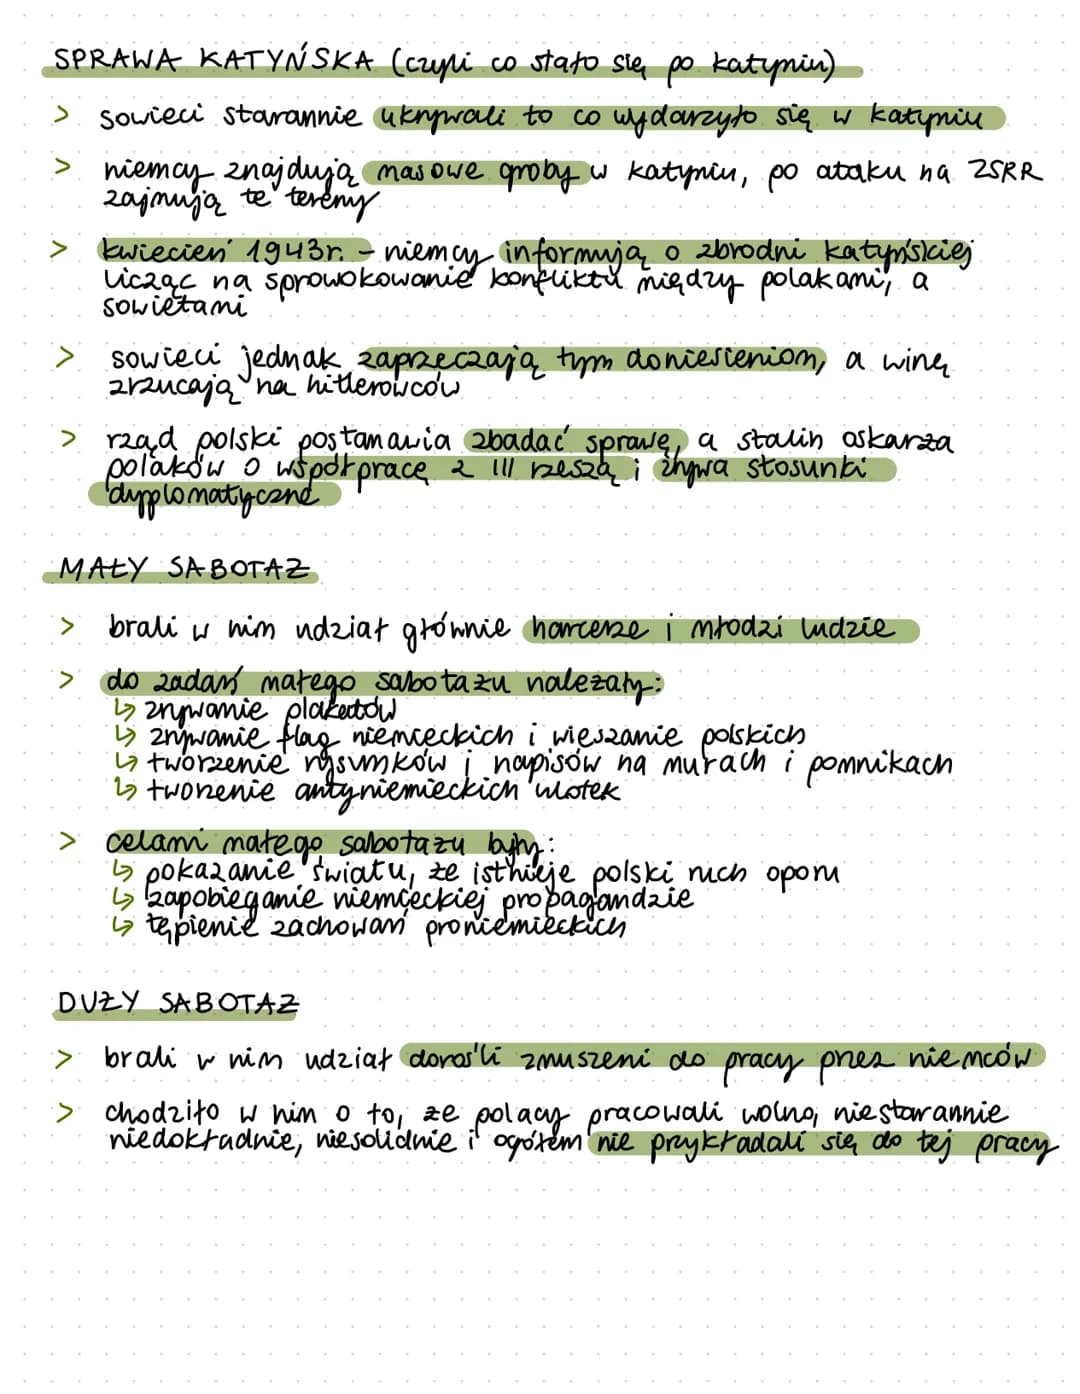 SPRAWA KATYŃSKA (czyli co stało się po katyniu)
> sowieci starannie ukrywali to co wydarzyło się w katyniu
> niemcy znajdują masowe groby w katyniu, po ataku na ZSRR
zajmują te tereny
> kwiecień 1943r. - niemcy informują o zbrodni katyńskiej
licząc na sprowokowanie konfliktu między polakami, a
sowietami
> sowieci jednak zaprzeczają tym doniesieniom, a winę
zrzucają na hitlerowców
> rząd polski postanawia zbadać sprawę, a stalin oskarża
polaków o współpracę z III rzeszą i zrywa stosunki
dyplomatyczne
MAŁY SABOTAŻ
> brali w nim udział głównie harcerze i młodzi ludzie
> do zadań małego sabotażu należały:
↳ zrywanie plakatów
↳ zrywanie flag niemieckich i wieszanie polskich
↳ tworzenie rysunków i napisów na murach i pomnikach
↳ tworzenie antyniemieckich ulotek
> celami małego sabotażu były:
↳ pokazanie światu, że istnieje polski ruch oporu
↳ zapobieganie niemieckiej propagandzie
↳ tępienie zachowań proniemieckich
DUŻY SABOTAŻ
> brali w nim udział dorośli zmuszeni do pracy przez niemców
> chodziło w nim o to, że polacy pracowali wolno, niestarannie
niedokładnie, niesolidnie i ogółem nie przykładali się do tej pracy